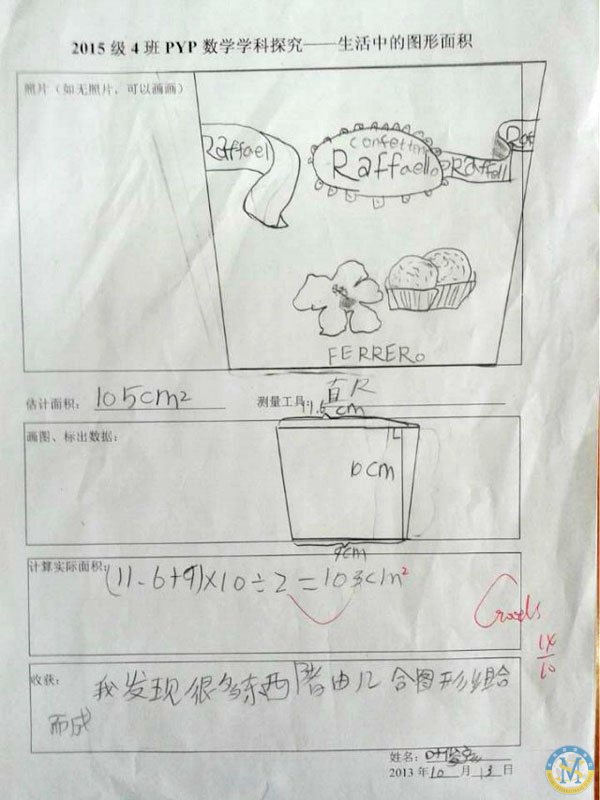 2015 级 4 班 PYP 数学学科探究——生活中的图形面积
照片（如无照片，可以画画）
Raffael
confetteria
Raffaello
Raffaell
Raf
FERRERO
估计面积： 105cm²
测量工具： 直尺
画图、标出数据：
11.6cm
10cm
9cm
计算实际面积：
(11.6+9)×10÷2=103cm²
Good!
收获： 我发现很多东西 皆由几合图形组合
而成
姓名：
2013 年 10 月 13 日
M